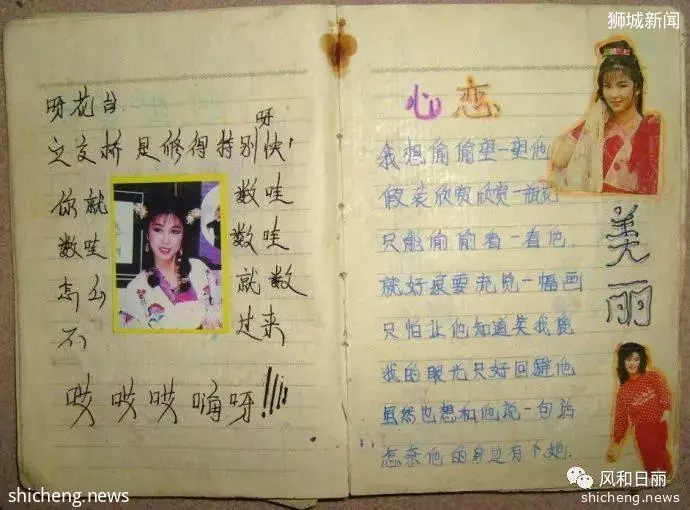 狮城新闻
呀花台
呀
立交桥是修得特别快
你就
数哇
怎么
不
数哇
数哇
就数
过来
哎哎哎嗨呀!!!
心恋
我想偷偷望一望他
假装欣赏欣赏一瓶花
只能偷偷看一看他
就好象要浏览一幅画
只怕让他知道笑我傻
我的眼光只好回避他
虽然也想和他说一句话
怎奈他的身边有个她
美丽
风和日丽
shicheng.news
shicheng.news